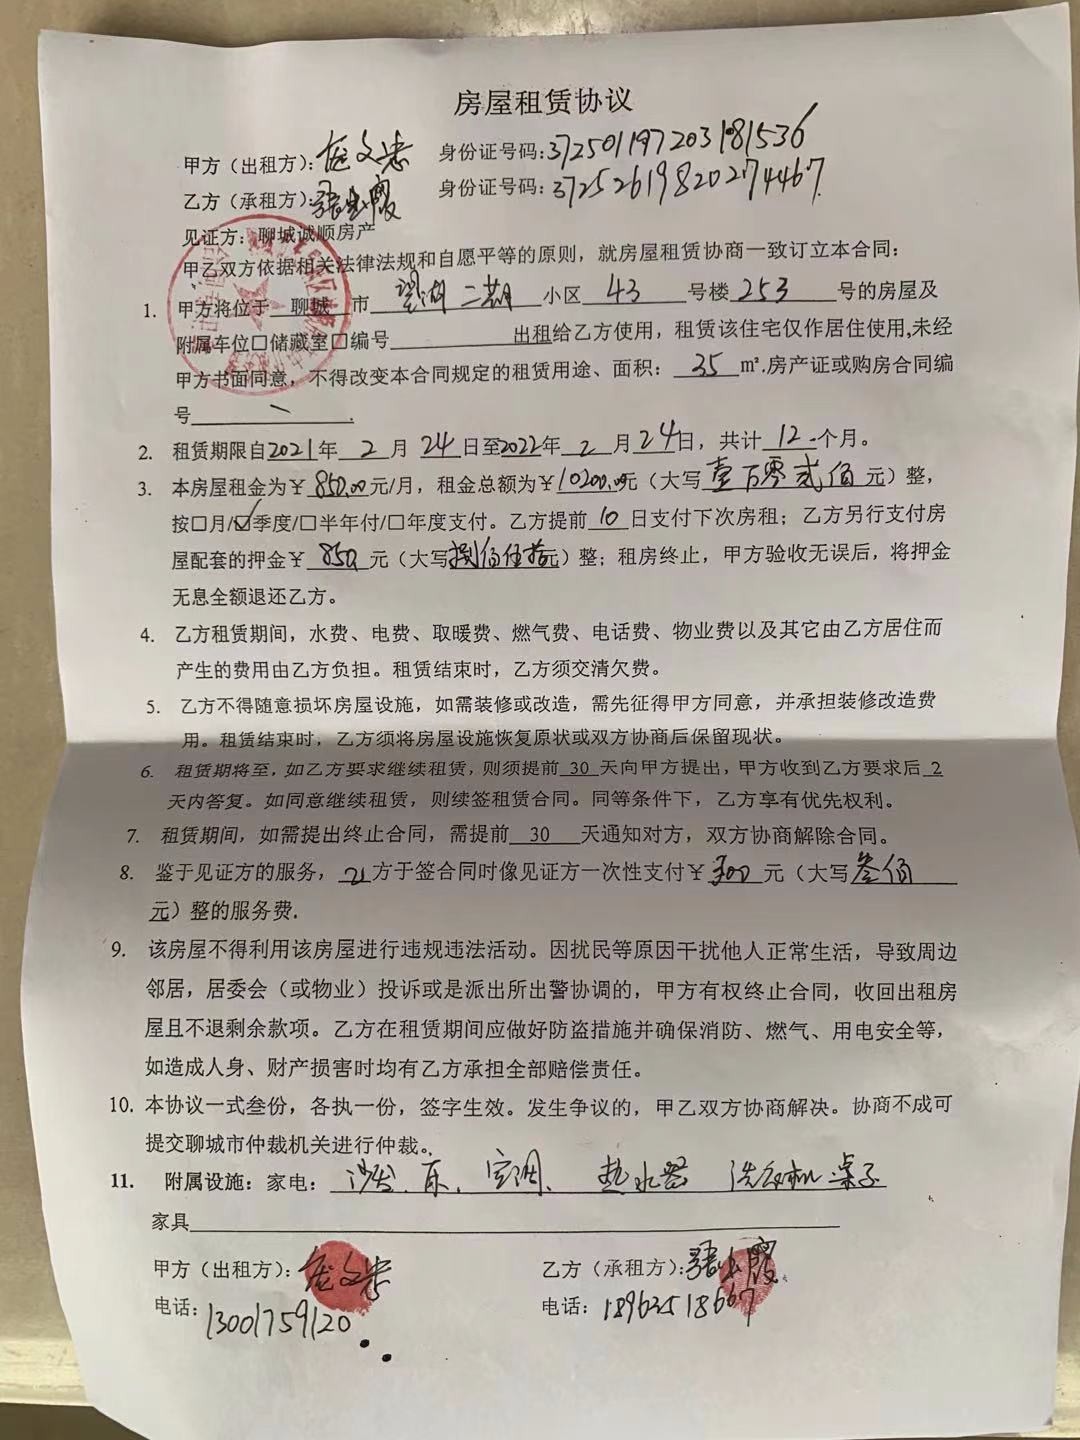 房屋租赁协议
甲方（出租方）：庞文忠 身份证号码：372501197203181536
乙方（承租方）：张霞 身份证号码：372526198202274467
见证方：聊城诚顺房产
甲乙双方依据相关法律法规和自愿平等的原则，就房屋租赁协商一致订立本合同：
1. 甲方将位于 聊城 市 望湖二期 小区 43 号楼 253 号的房屋及
附属车位□储藏室□编号 出租给乙方使用，租赁该住宅仅作居住使用,未经
甲方书面同意，不得改变本合同规定的租赁用途、面积： 35 ㎡.房产证或购房合同编
号 .
2. 租赁期限自2021年 2 月 24 日至2022年 2 月24日，共计 12 个月。
3. 本房屋租金为￥850.00元/月，租金总额为￥10200.00元（大写壹万零贰佰元）整，
按□月/☑季度/□半年付/□年度支付。乙方提前 10 日支付下次房租；乙方另行支付房
屋配套的押金￥ 850 元（大写捌佰伍拾元）整；租房终止，甲方验收无误后，将押金
无息全额退还乙方。
4. 乙方租赁期间，水费、电费、取暖费、燃气费、电话费、物业费以及其它由乙方居住而
产生的费用由乙方负担。租赁结束时，乙方须交清欠费。
5. 乙方不得随意损坏房屋设施，如需装修或改造，需先征得甲方同意，并承担装修改造费
用。租赁结束时，乙方须将房屋设施恢复原状或双方协商后保留现状。
6. 租赁期将至，如乙方要求继续租赁，则须提前 30 天向甲方提出，甲方收到乙方要求后 2
天内答复。如同意继续租赁，则续签租赁合同。同等条件下，乙方享有优先权利。
7. 租赁期间，如需提出终止合同，需提前 30 天通知对方，双方协商解除合同。
8. 鉴于见证方的服务，乙方于签合同时像见证方一次性支付￥300 元（大写叁佰
元）整的服务费.
9. 该房屋不得利用该房屋进行违规违法活动。因扰民等原因干扰他人正常生活，导致周边
邻居，居委会（或物业）投诉或是派出所出警协调的，甲方有权终止合同，收回出租房
屋且不退剩余款项。乙方在租赁期间应做好防盗措施并确保消防、燃气、用电安全等，
如造成人身、财产损害时均有乙方承担全部赔偿责任。
10. 本协议一式叁份，各执一份，签字生效。发生争议的，甲乙双方协商解决。协商不成可
提交聊城市仲裁机关进行仲裁。
11. 附属设施：家电： 沙发、床、空调、热水器 洗衣机 桌子
家具
甲方（出租方）：庞文忠 乙方（承租方）：张霞
电话：13001759120 电话：18963518667